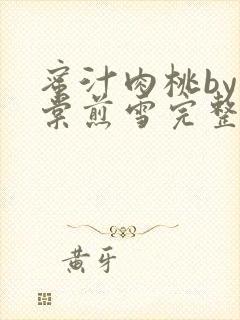 蜜汁肉桃by
棠煎雪完整
黄牙